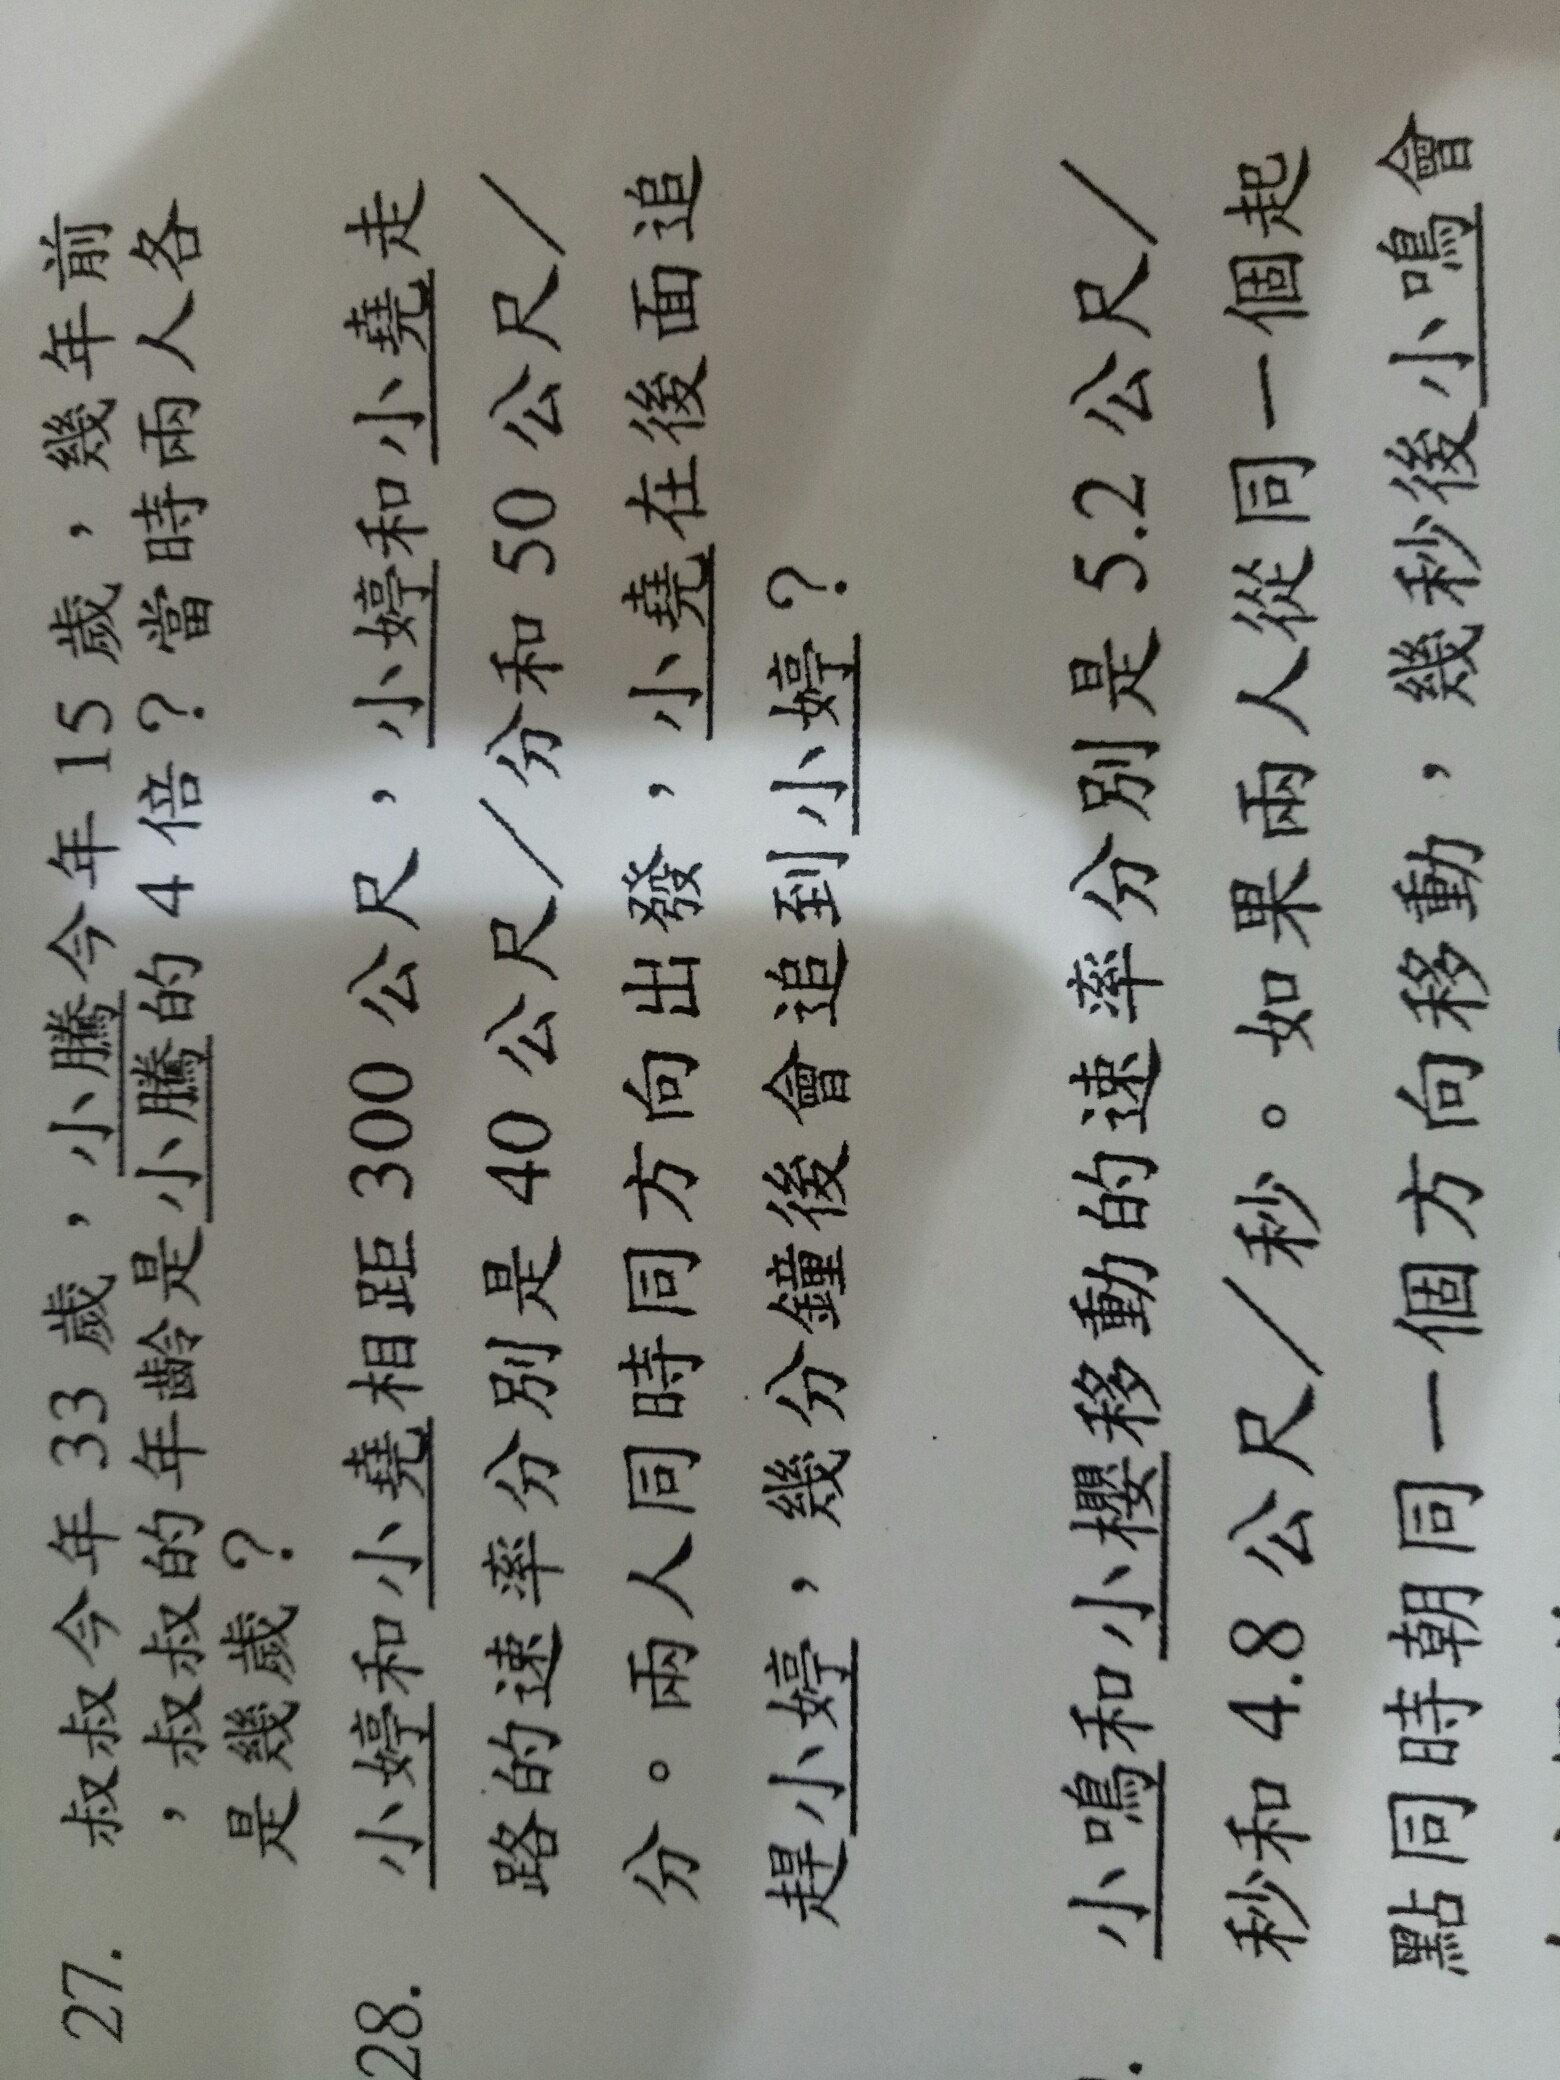 27. 叔叔今年 33 歲，小騰今年 15 歲，幾年前
，叔叔的年齡是小騰的 4 倍？當時兩人各
是幾歲？
28. 小婷和小堯相距 300 公尺，小婷和小堯走
路的速率分別是 40 公尺／分和 50 公尺／
分。兩人同時同方向出發，小堯在後面追
趕小婷，幾分鐘後會追到小婷？
小鳴和小櫻移動的速率分別是 5.2 公尺／
秒和 4.8 公尺／秒。如果兩人從同一個起
點同時朝同一個方向移動，幾秒後小鳴會